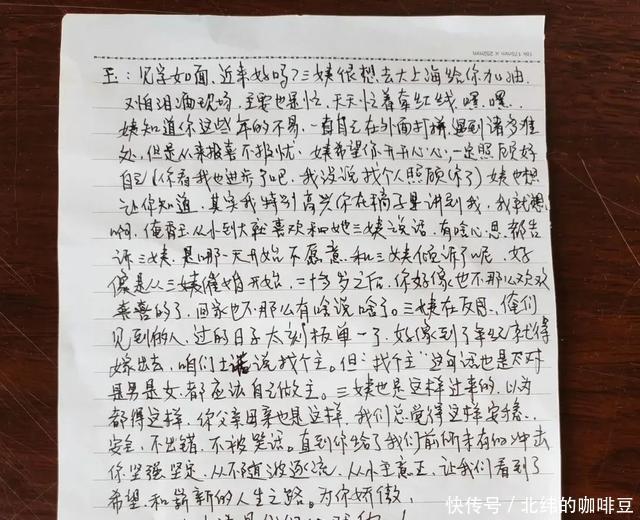 16k 175mm x 252mm
玉:见字如面,近来好吗?三姨很想去大上海给你加油,
又怕泪洒现场,主要也是忙,天天忙着牵红线,嘿,嘿,
姨知道你这些年的不易,一直自己在外面打拼,遇到诸多难
处,但是从来报喜不报忧,姨希望你开开心心,一定照顾好
自己(你看我也进步了吧,我没说找个人照顾你了)姨也想
让你知道,其实我特别高兴你在稿子里讲到我,我就想
啊,俺家玉从小到大就喜欢和她三姨说话,有啥心思都告
诉三姨,是哪一天开始不愿意和三姨倾诉了呢,好
像是从三姨催婚开始,二十多岁之后,你好像也不那么欢欢
喜喜的了,回家也不那么有啥说啥了。三姨在反思,俺们
见到的人,过的日子太刻板单一了,好像到了年纪就得
嫁出去,咱们土话说找个主。但"找个主"这句话也是不对
是男是女,都应该自己做主。三姨也是这样过来的,以为
都得这样,你父亲母亲也是这样,我们总觉得这样安稳,
安全,不出错,不被笑话。直到你给了我们前所未有的冲击
你坚强坚定,从不随波逐流,从小主意正,让我们看到了
希望,和崭新的人生之路。为你骄傲,
快传号/北纬的咖啡豆